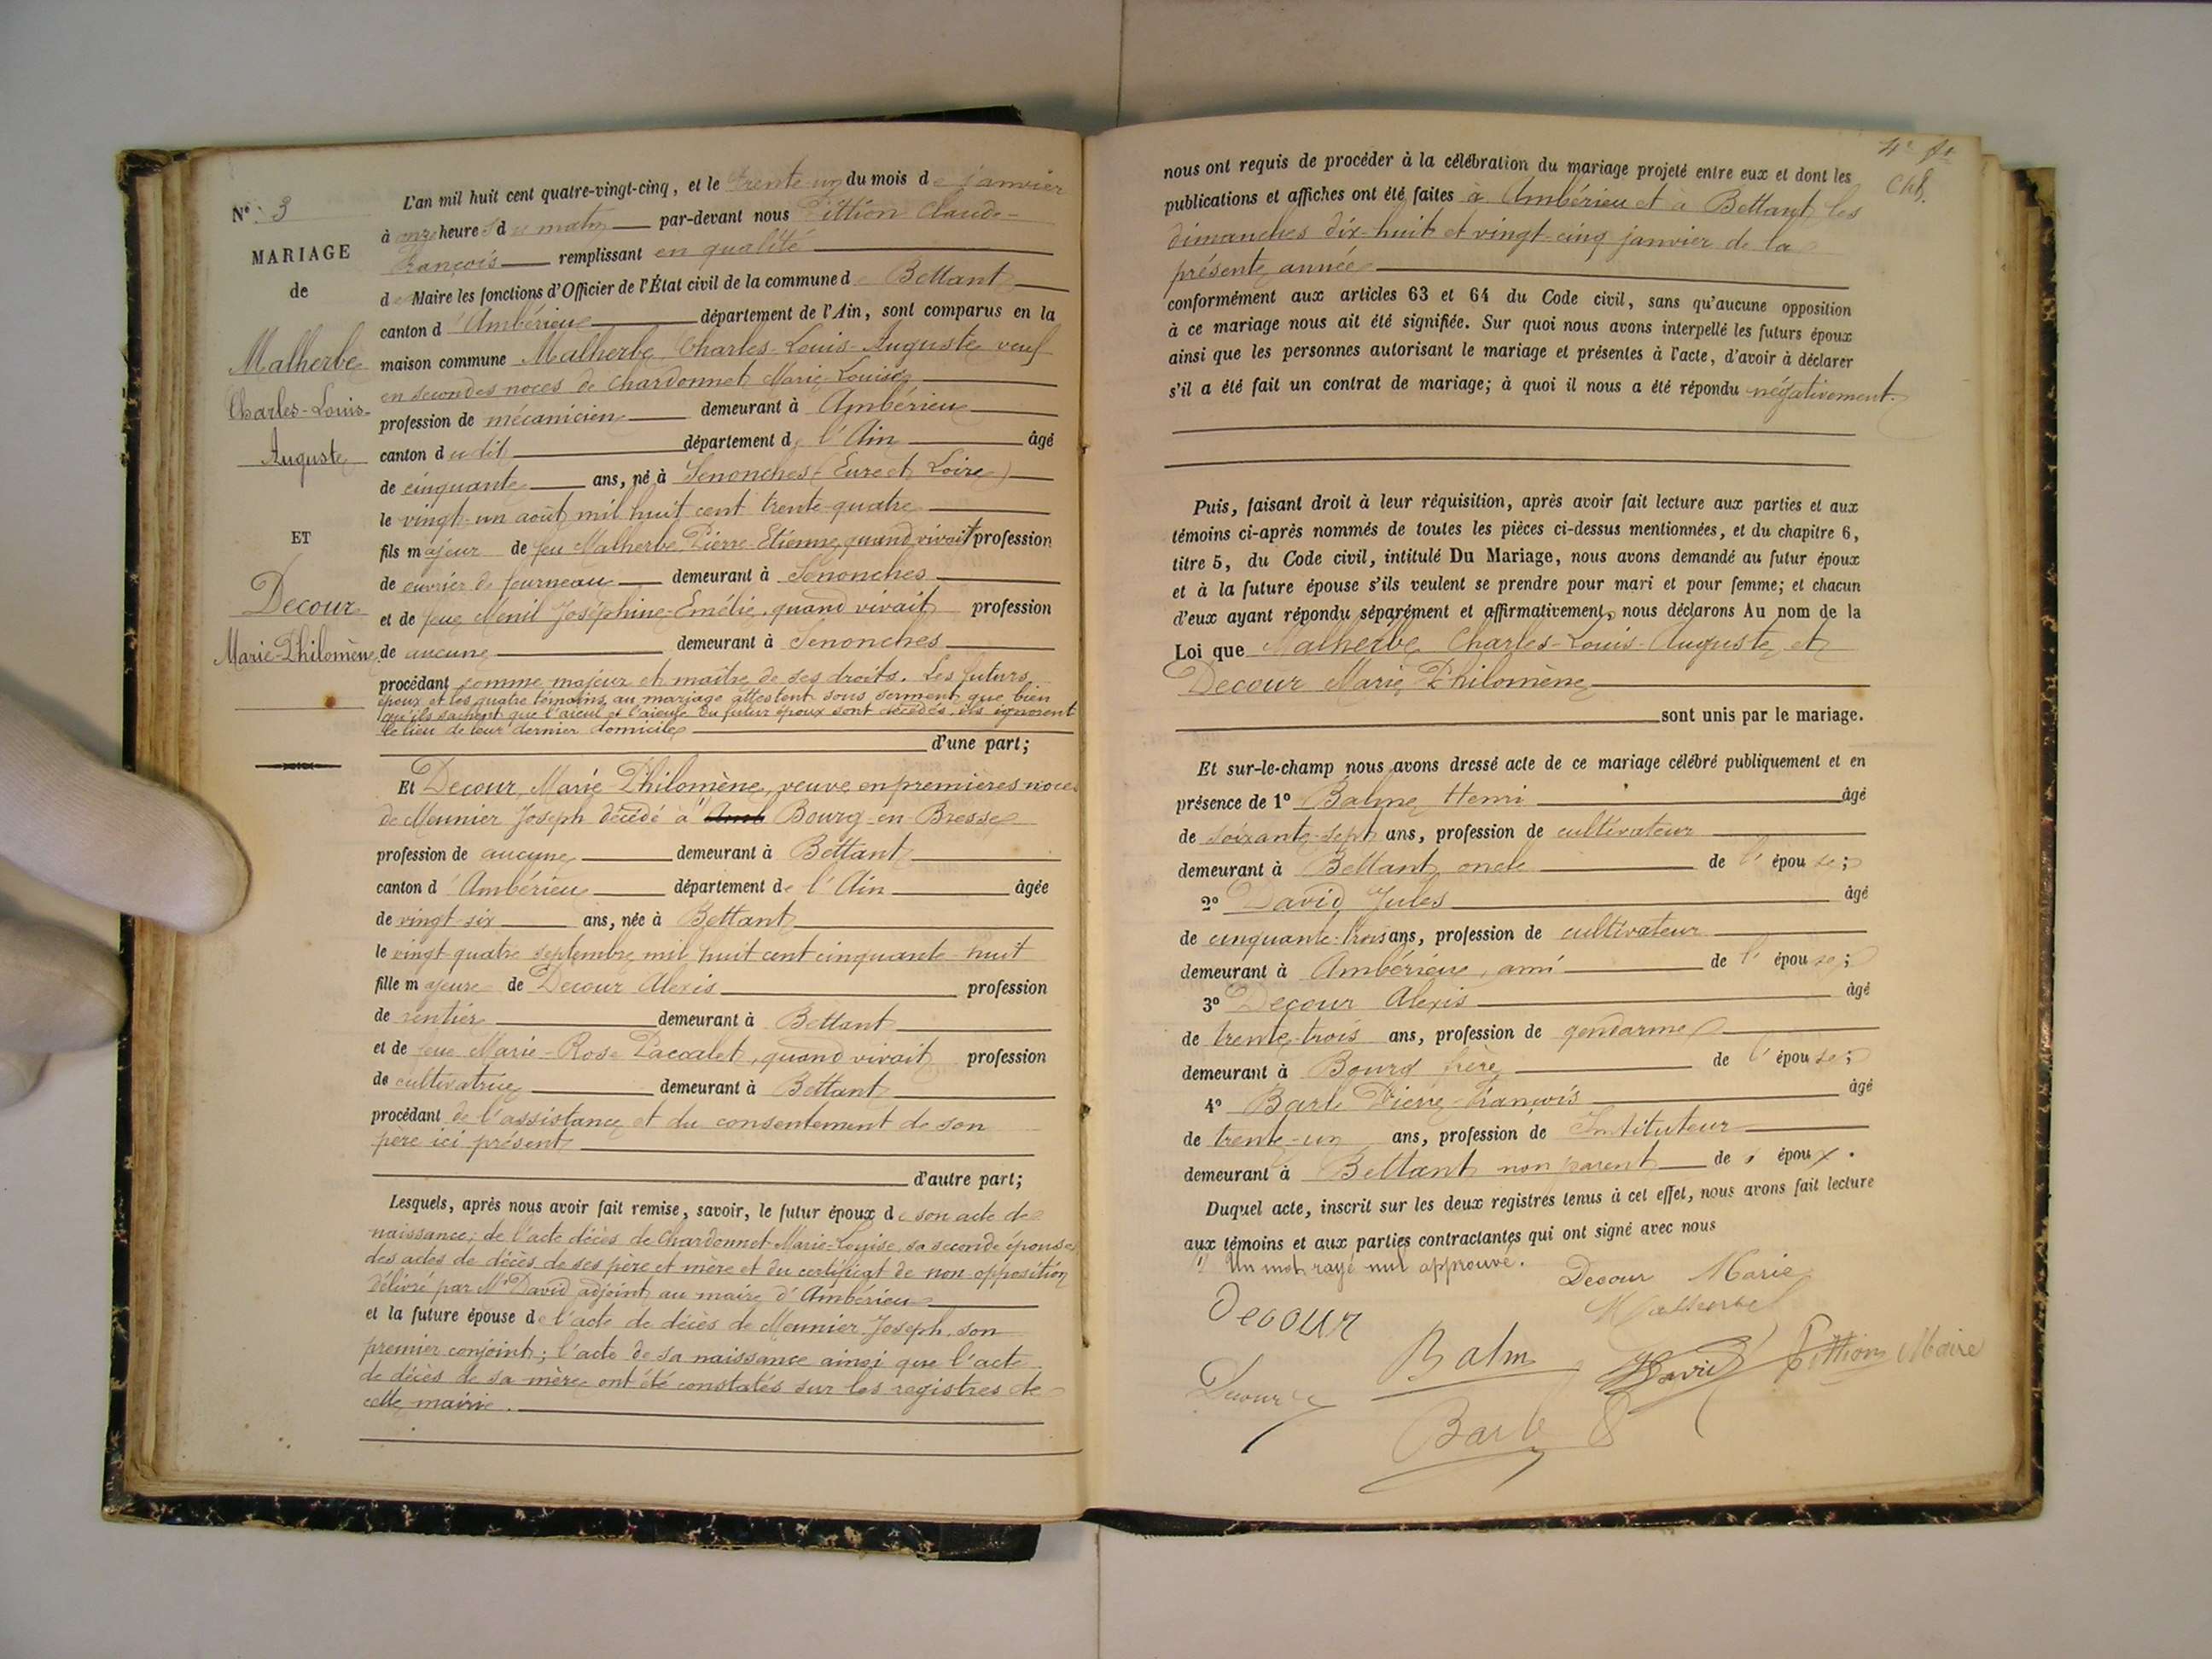 N° 3
MARIAGE
de
Malherbe
Charles-Louis-
Auguste
ET
Decour
Marie-Philomène
L'an mil huit cent quatre-vingt-cinq, et le trente un du mois de janvier
à onze heures du matin par-devant nous Pittion Claude-
François remplissant en qualité
de Maire les fonctions d'Officier de l'État civil de la commune de Bettant
canton d'Ambérieu département de l'Ain, sont comparus en la
maison commune Malherbe Charles-Louis-Auguste veuf
en secondes noces de Chardonnet Marie-Louise
profession de mécanicien demeurant à Ambérieu
canton dudit département de l'Ain âgé
de cinquante ans, né à Senonches (Eure et Loire)
le vingt-un août mil huit cent trente-quatre
fils majeur de feu Malherbe Pierre-Etienne, quand vivait profession
de ouvrier de fourneau demeurant à Senonches
et de feue Menil Joséphine-Emélie, quand vivait profession
de aucune demeurant à Senonches
procédant comme majeur et maître de ses droits. Les futurs
époux et les quatre témoins au mariage attestent sous serment que bien
qu'ils sachent que l'aïeul et l'aïeule du futur époux sont décédés, ils ignorent
le lieu de leur dernier domicile
d'une part;
Et Decour, Marie Philomène, veuve en premières noces
de Meunier Joseph décédé à Bourg-en-Bresse
profession de aucune demeurant à Bettant
canton d'Ambérieu département de l'Ain âgée
de vingt-six ans, née à Bettant
le vingt-quatre septembre mil huit cent cinquante-huit
fille majeure de Decour Alexis profession
de rentier demeurant à Bettant
et de feue Marie-Rose Pacoalet, quand vivait profession
de cultivatrice demeurant à Bettant
procédant de l'assistance et du consentement de son
père ici présent
d'autre part;
Lesquels, après nous avoir fait remise, savoir, le futur époux de son acte de
naissance; de l'acte décès de Chardonnet Marie-Louise, sa seconde épouse,
des actes de décès de ses père et mère et du certificat de non opposition
délivré par Mr David adjoint au maire d'Ambérieu
et la future épouse de l'acte de décès de Meunier Joseph, son
premier conjoint; l'acte de sa naissance ainsi que l'acte
de décès de sa mère ont été constatés sur les registres de
cette mairie.
nous ont requis de procéder à la célébration du mariage projeté entre eux et dont les
publications et affiches ont été faites à Ambérieu et à Bettant les
dimanches dix-huit et vingt-cinq janvier de la
présente année
conformément aux articles 63 et 64 du Code civil, sans qu'aucune opposition
à ce mariage nous ait été signifiée. Sur quoi nous avons interpellé les futurs époux
ainsi que les personnes autorisant le mariage et présentes à l'acte, d'avoir à déclarer
s'il a été fait un contrat de mariage; à quoi il nous a été répondu négativement.
Puis, faisant droit à leur réquisition, après avoir fait lecture aux parties et aux
témoins ci-après nommés de toutes les pièces ci-dessus mentionnées, et du chapitre 6,
titre 5, du Code civil, intitulé Du Mariage, nous avons demandé au futur époux
et à la future épouse s'ils veulent se prendre pour mari et pour femme; et chacun
d'eux ayant répondu séparément et affirmativement, nous déclarons Au nom de la
Loi que Malherbe Charles-Louis-Auguste et
Decour Marie Philomène
sont unis par le mariage.
Et sur-le-champ nous avons dressé acte de ce mariage célébré publiquement et en
présence de 1° Balme Henri âgé
de soixante-sept ans, profession de cultivateur
demeurant à Bettant, oncle de l'épouse;
2° David Jules âgé
de cinquante-trois ans, profession de cultivateur
demeurant à Ambérieu, ami de l'épouse;
3° Decour Alexis âgé
de trente-trois ans, profession de gendarme
demeurant à Bourg frère de l'épouse;
4° Barb Pierre-François âgé
de trente-un ans, profession de Instituteur
demeurant à Bettant non parent de époux.
Duquel acte, inscrit sur les deux registres tenus à cet effet, nous avons fait lecture
aux témoins et aux parties contractantes qui ont signé avec nous
1) Un mot rayé nul approuvé.
Decour Marie
Malherbe
Decour
Balme
David
Pittion Maire
Decour
Barb